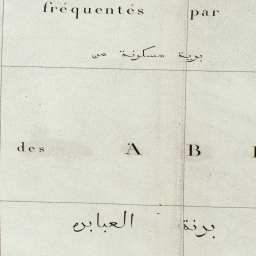 fréquentés par
برية مسكونة من
des A B
برنة العبابده